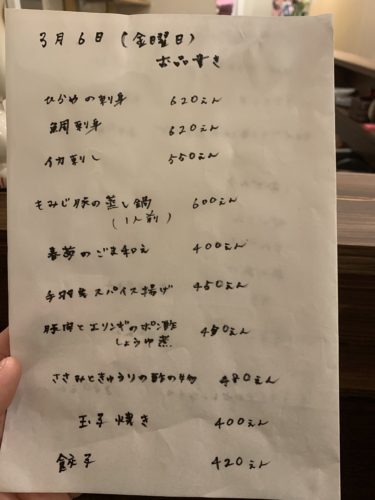 3月6日(金曜日)
お品書き
ひらめの刺身 620えん
鯛刺身 620えん
イカ刺し 550えん
もみじ豚の蒸し鍋 600えん
(1人前)
春菊のごま和え 400えん
手羽先スパイス揚げ 450えん
豚肉とエリンギのポン酢 480えん
しょうゆ煮
ささみときゅうりの酢の物 480えん
玉子焼き 400えん
餃子 420えん